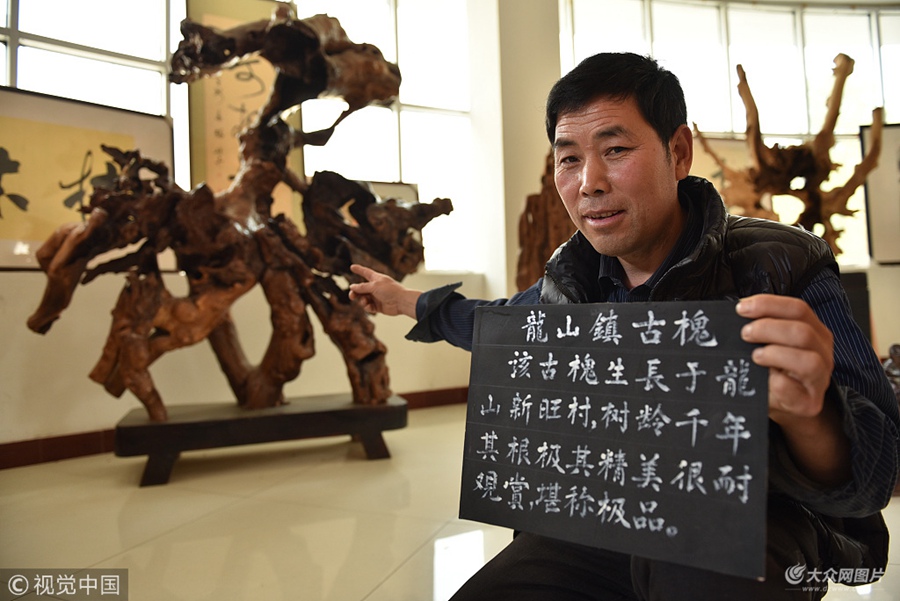 龍山鎮古槐
該古槐生長于龍
山新旺村,树龄千年
其根极其精美很耐
观賞,堪称极品。
© 视觉中国
大众网图片